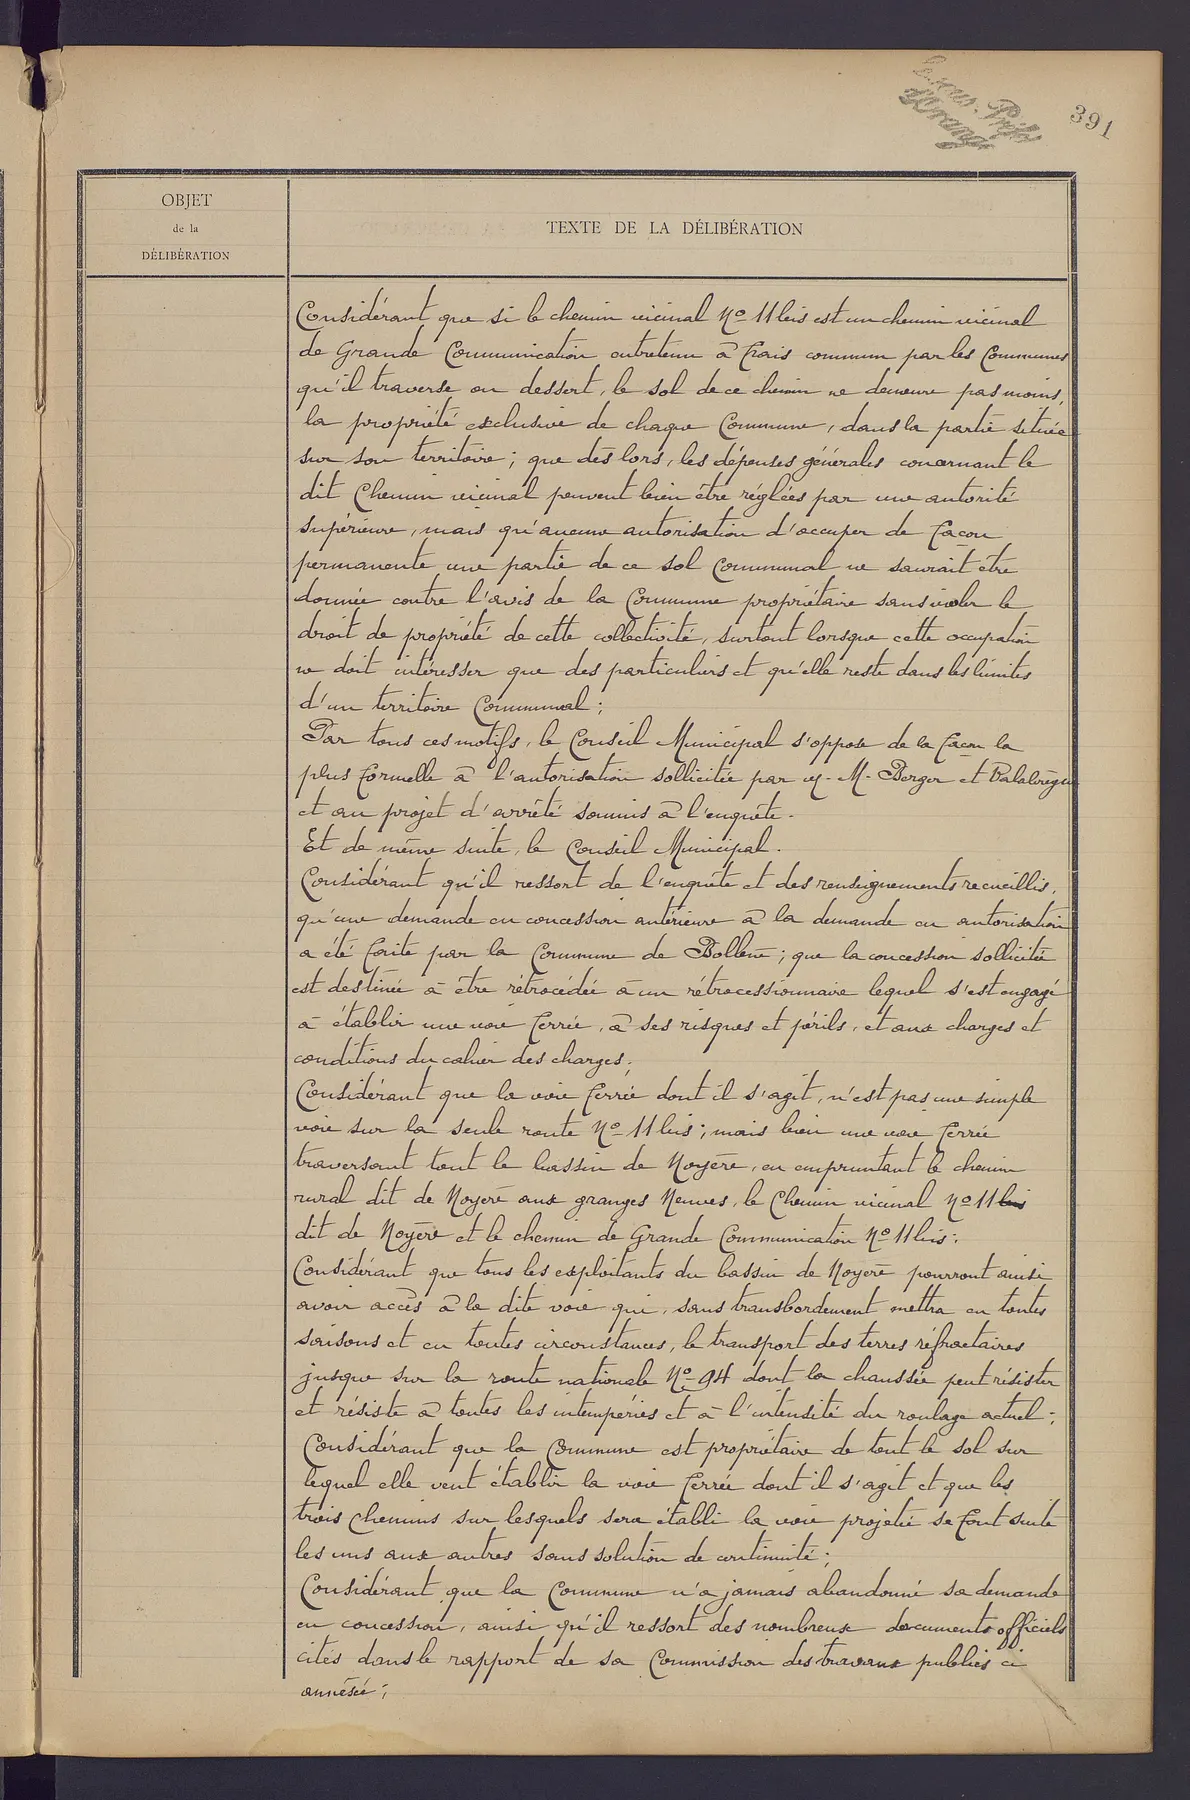 le sous-Préfet
d'Orange
391
OBJET
de la
DÉLIBÉRATION
TEXTE DE LA DÉLIBÉRATION
Considérant que si le chemin vicinal No 11 bis est un chemin vicinal
de Grande Communication entretenu à frais commun par les Communes
qu'il traverse ou dessert, le sol de ce chemin ne demeure pas moins,
la propriété exclusive de chaque Commune, dans la partie située
sur son territoire ; que dès lors, les dépenses générales concernant le
dit Chemin vicinal peuvent bien être réglées par une autorité
supérieure, mais qu'aucune autorisation d'occuper de façon
permanente une partie de ce sol Communal ne saurait être
donnée contre l'avis de la Commune propriétaire sans violer le
droit de propriété de cette collectivité, surtout lorsque cette occupation
ne doit intéresser que des particuliers et qu'elle reste dans les limites
d'un territoire Communal ;
Par tous ces motifs, le Conseil Municipal s'oppose de la façon la
plus formelle à l'autorisation sollicitée par M. M. Berger et Valabrègue
et au projet d'arrêté soumis à l'enquête.
Et de même suite, le Conseil Municipal.
Considérant qu'il ressort de l'enquête et des renseignements recueillis,
qu'une demande en concession antérieure à la demande en autorisation
a été faite par la Commune de Bollène ; que la concession sollicitée
est destinée à être rétrocédée à un rétrocessionnaire lequel s'est engagé
à établir une voie ferrée, à ses risques et périls, et aux charges et
conditions du cahier des charges ;
Considérant que la voie ferrée dont il s'agit, n'est pas une simple
voie sur la seule route No 11 bis ; mais bien une voie ferrée
traversant tout le bassin de Noyère, en empruntant le chemin
rural dit de Noyère aux granges Neuves, le Chemin vicinal No 11 bis
dit de Noyère et le chemin de Grande Communication No 11 bis ;
Considérant que tous les exploitants du bassin de Noyère pourront ainsi
avoir accès à la dite voie qui, sans transbordement mettra en toutes
saisons et en toutes circonstances, le transport des terres réfractaires
jusque sur la route nationale No 94 dont la chaussée peut résister
et résiste à toutes les intempéries et à l'intensité du roulage actuel ;
Considérant que la Commune est propriétaire de tout le sol sur
lequel elle veut établir la voie ferrée dont il s'agit et que les
trois Chemins sur lesquels sera établi la voie projetée se font suite
les uns aux autres sans solution de continuité ;
Considérant que la Commune n'a jamais abandonné sa demande
en concession, ainsi qu'il ressort des nombreux documents officiels
cités dans le rapport de sa Commission des travaux publics ci
annexée ;